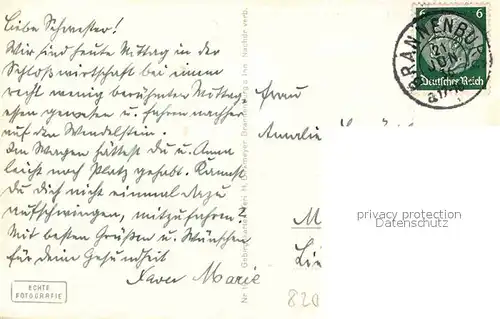 Liebe Schwester!
Wir sind heute Mittag in der
Schloßwirtschaft bei einem
recht wenig berühmten Mittag-
essen gewesen u. fahren nachher
auf den Wendelstein.
Im Wagen hättest Du u. Anna
leicht noch Platz gehabt. Kannst
Du Dich nicht einmal dazu
aufschwingen, mitzufahren?
Mit besten Grüßen u. Wünschen
für Deine Gesundheit
Marie
ECHTE
FOTOGRAFIE
Nachdr. verb.
6 6
Deutsches Reich
BRANNENBURG
Frau
M
Lie
820
privacy protection
Datenschutz